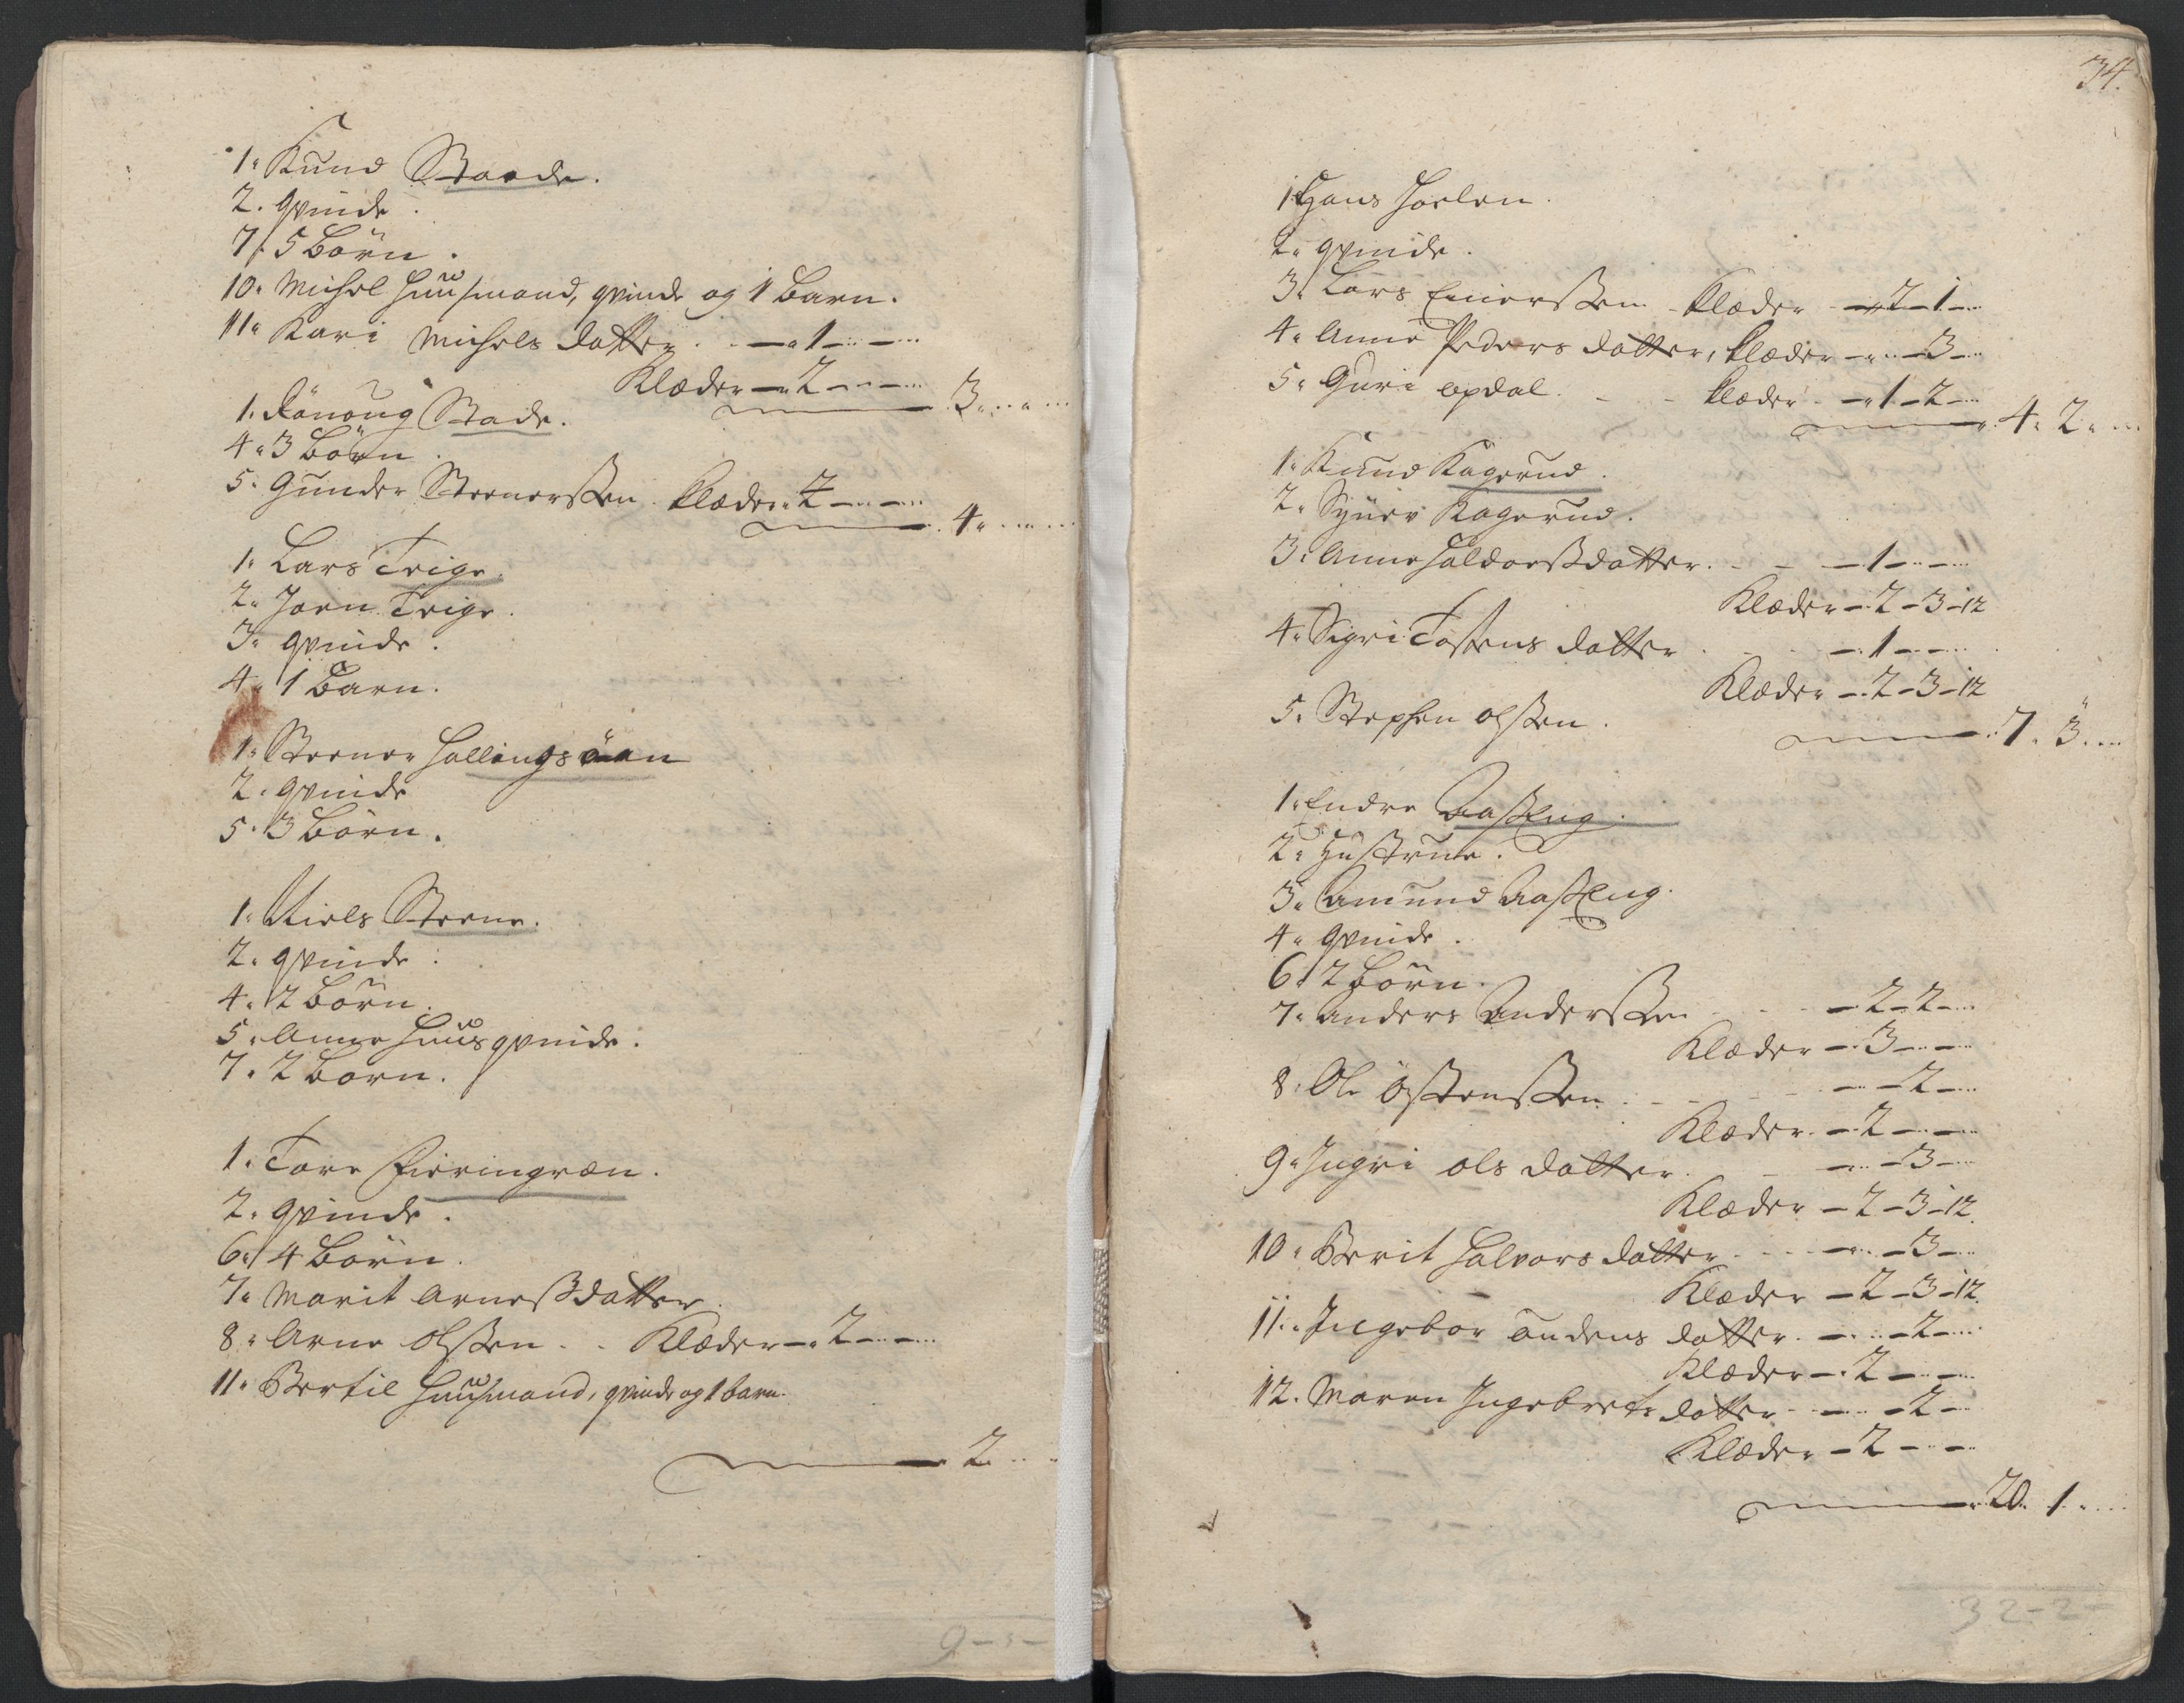 1. Knud Staade.
2. Qvinde.
7. 5 Börn.
10. Michel Huusmand, qvinde og 1 Barn.
11. Kari Michels datter. - 1 - -
Klæder - 2 - - 3.
1. Rönoug Stade.
4. 3 Börn.
5. Gunder Steenerssen. Klæder. 4 - -
4.
1. Lars Trige.
2. Joen Trige.
3. qvinde.
4. 1 Barn.
1. Steener Hallingsöen
2. Qvinde
5. 3 Börn.
1. Niels Steene.
2. qvinde.
4. 2 Börn.
5. Anne Huus qvinde.
7. 2 Börn.
1. Tore
2. Qvinde.
6. 4 Börn.
7. Marit Arneßdatter.
8. Arne Olssen. - Klæder - 2 - -
11. Bertil Huusmand, qvinde og 1 barn.
2.
9 - -
34.
1. Hans Hoelen.
2. qvinde.
3. Lars Einerssen. Klæder - 2 - 1 -
4. Anne Peders datter, Klæder - - 3 -
5. Guri Opdal. - - Klæder - 1 - 2 -
4. 2.
1. Knud Kagerud.
2. Synev Kagerud.
3. Anne Haldorßdatter. - - 1 - -
Klæder - 2 - 3 - 12
4. Sigri Tostens datter - 1 - -
Klæder - 2 - 3 - 12
5. Stephen Olssen.
7. 3.
1. Endre Aaßeng.
2. Hustrue.
3. Amund Aaßeng.
4. Qvinde.
6. 2 Börn.
7. Anders Anderssen - 2 - 2 -
Klæder - 3 - -
8. Ole Östenssen - - 2 -
Klæder - 2 - -
9. Ingri Ols datter. - - 3 -
Klæder - 2 - 3 - 12.
10. Berit Halvors datter - - 3 -
Klæder - 2 - 3 - 12.
11. Ingebor Audens datter. - - 2 -
Klæder - 2 - -
12. Maren Ingebrets datter - - 2 -
Klæder - 2 - -
20. 1.
32 - 2 -